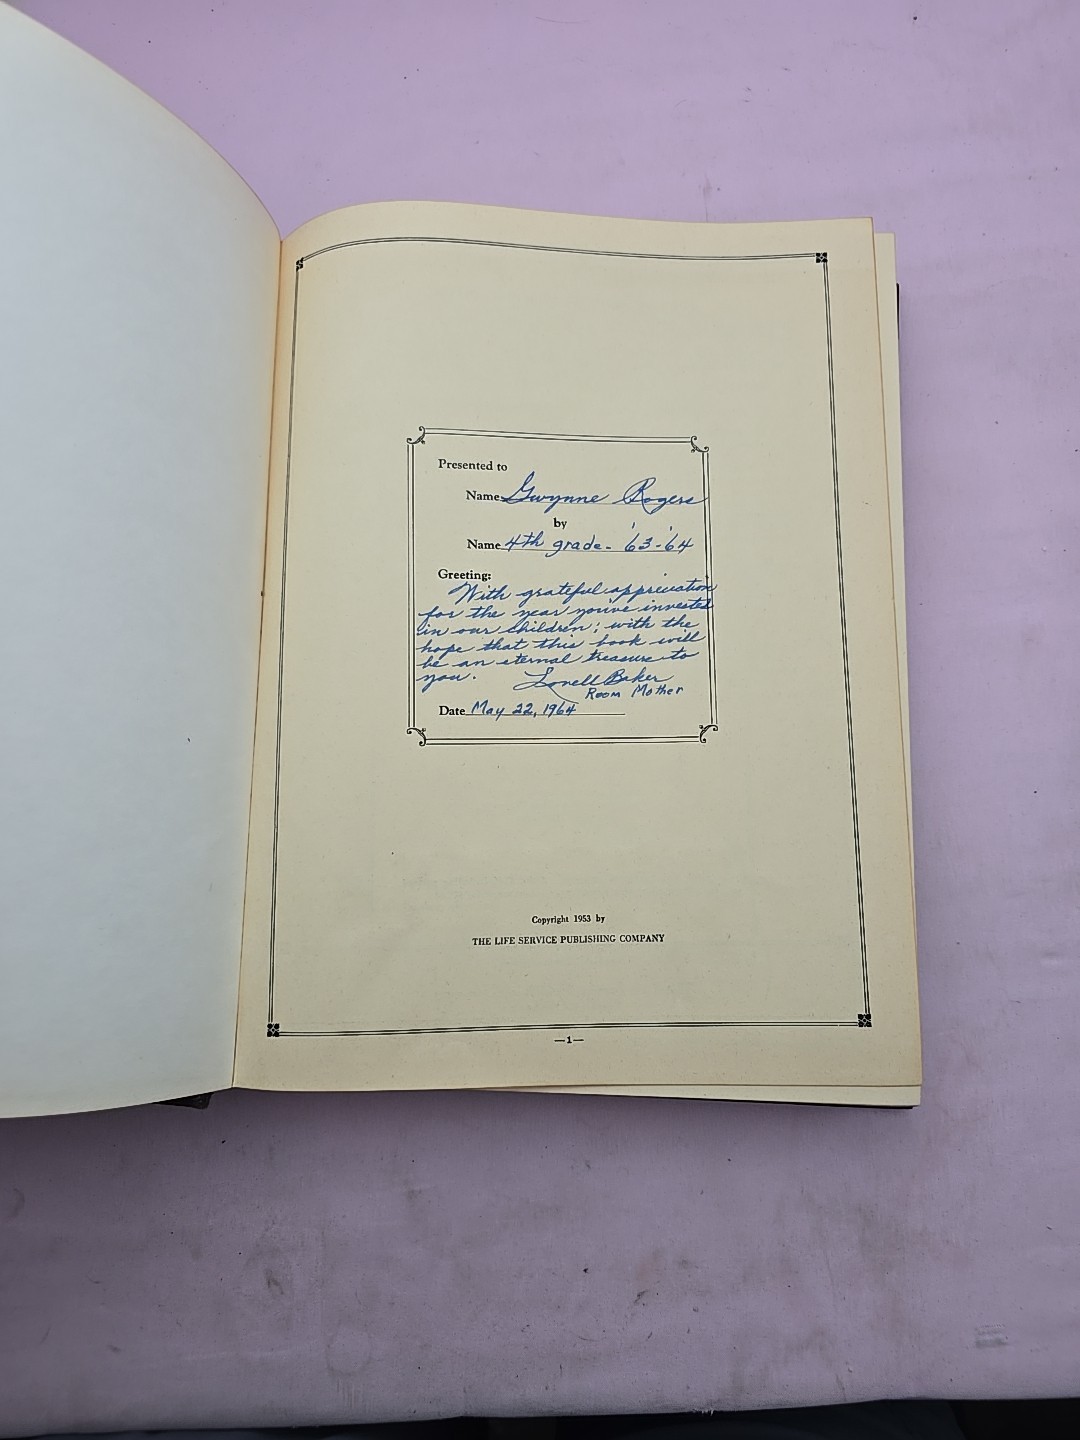 Presented to
Name Gwynne Rogers
by
Name 4th grade - '63-'64
Greeting:
With grateful appreciation
for the year you've invested
in our children; with the
hope that this book will
be an eternal treasure to
you. Lovell Baker
Room Mother
Date May 22, 1964
Copyright 1953 by
THE LIFE SERVICE PUBLISHING COMPANY
—1—